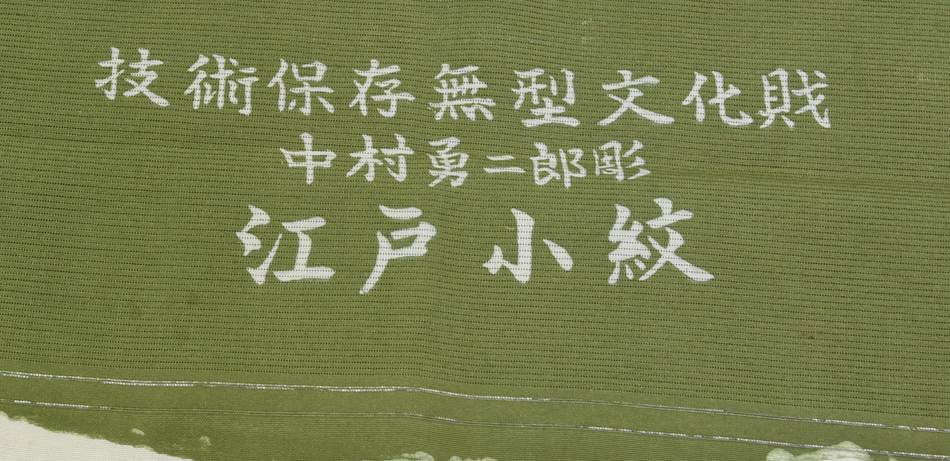 技術保存無型文化財
中村勇二郎彫
江戸小紋